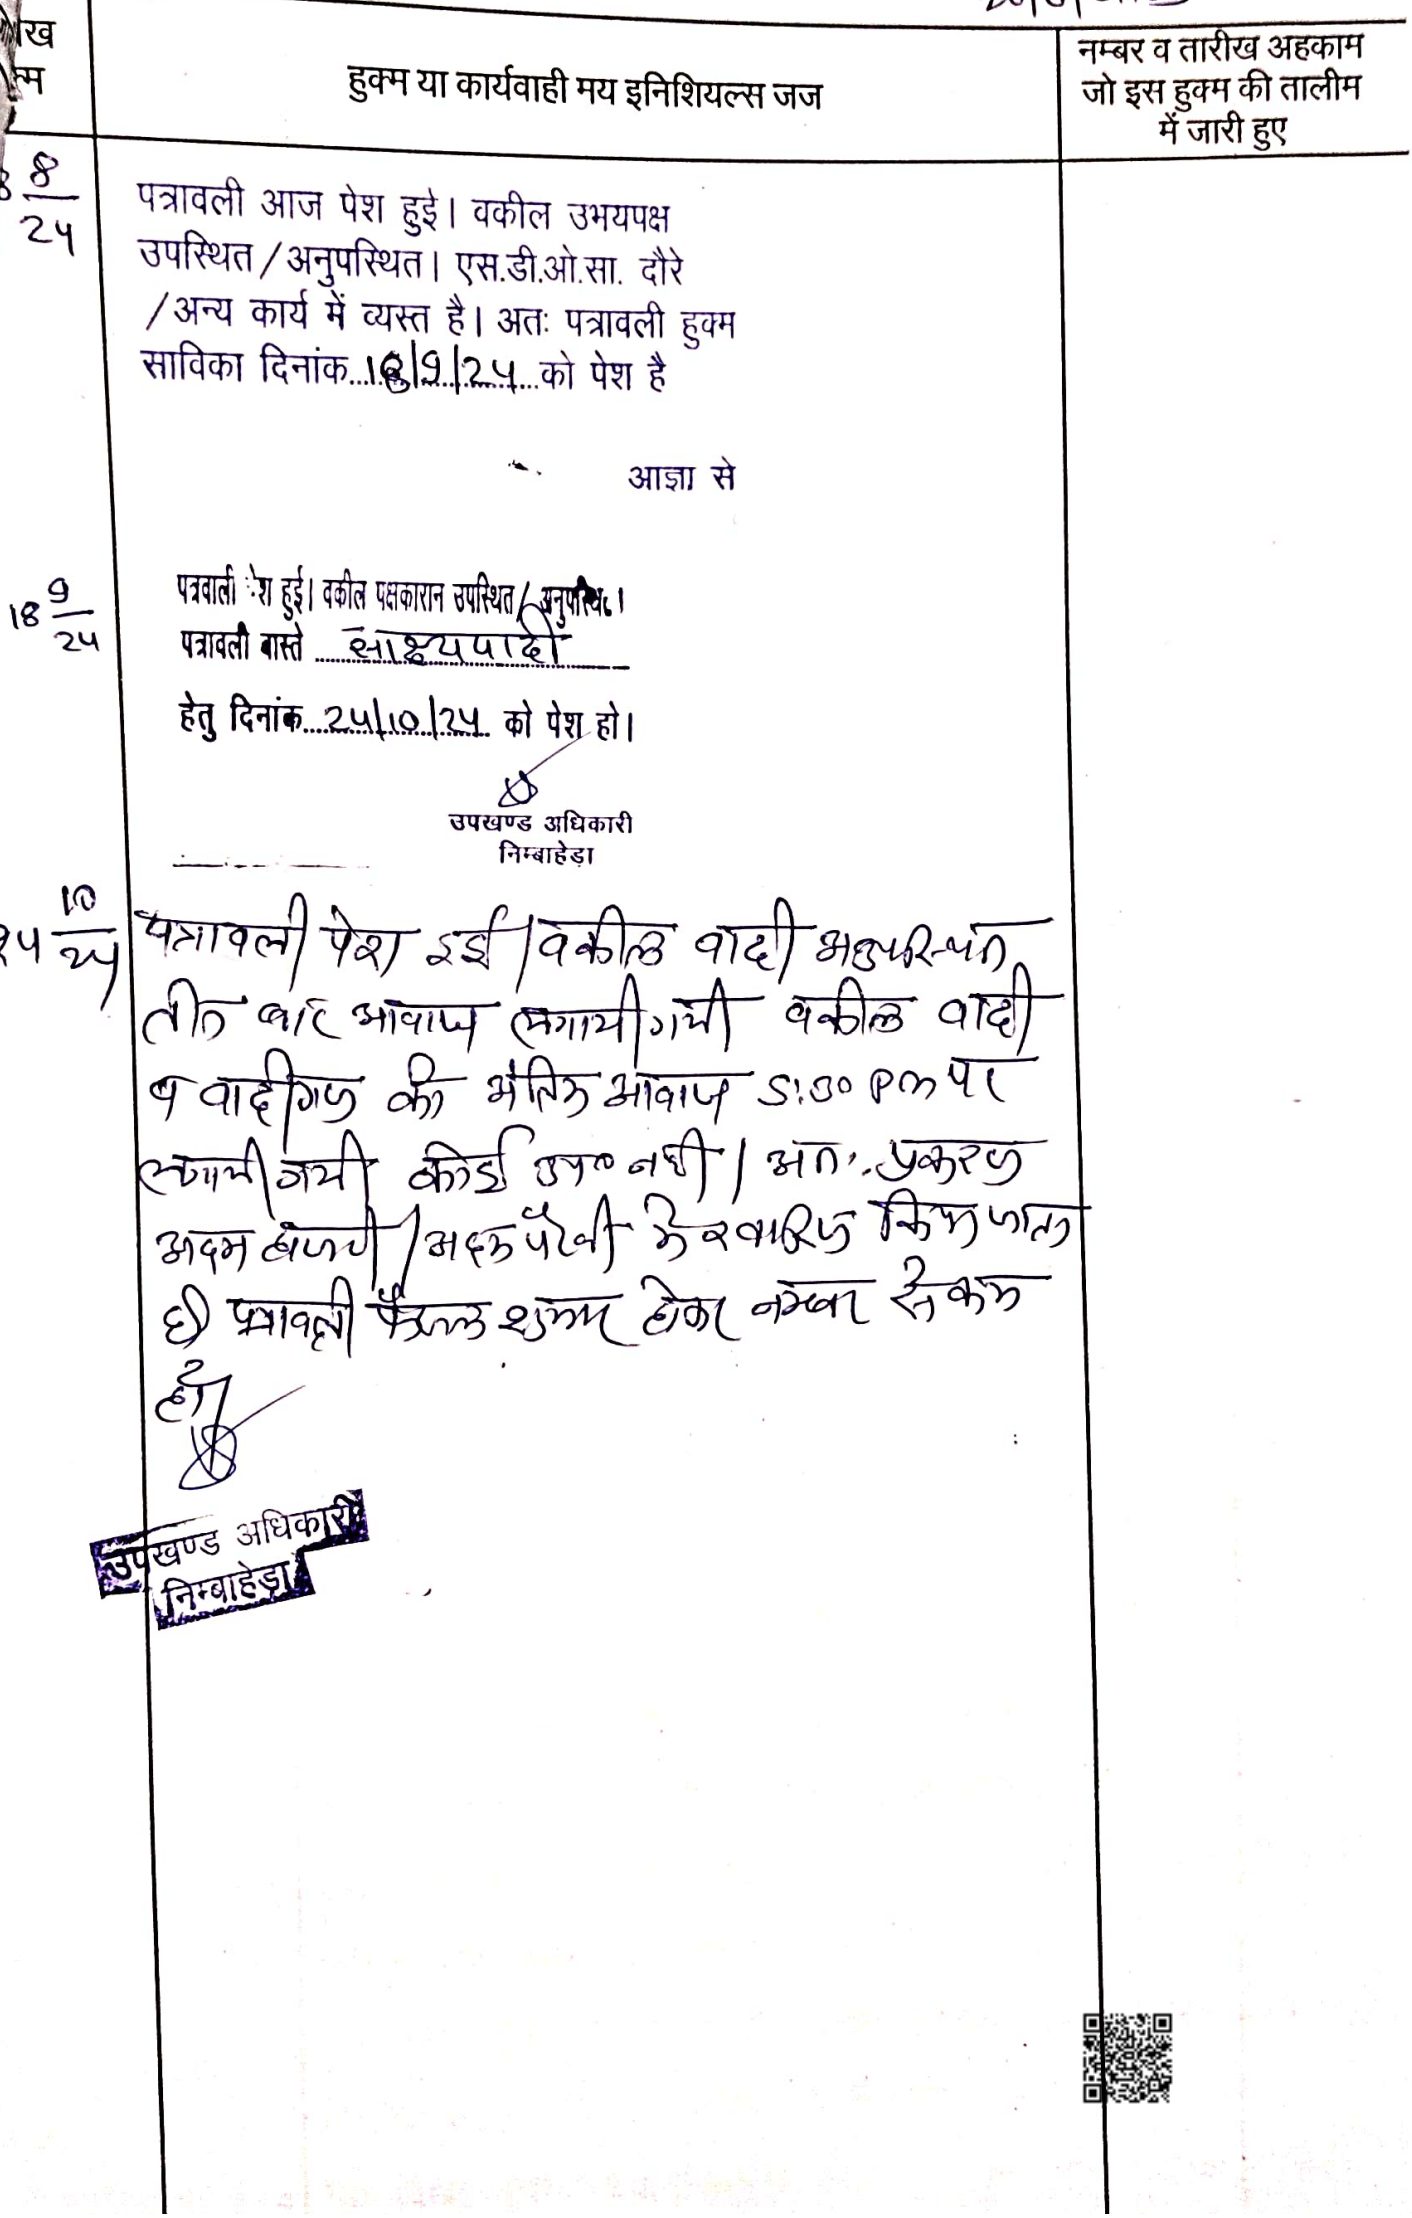 हुक्म या कार्यवाही मय इनिशियल्स जज
नम्बर व तारीख अहकाम
जो इस हुक्म की तालीम
में जारी हुए
8/24
पत्रावली आज पेश हुई। वकील उभयपक्ष
उपस्थित/अनुपस्थित। एस.डी.ओ.सा. दौरे
/अन्य कार्य में व्यस्त है। अतः पत्रावली हुक्म
साविका दिनांक...18/9/24...को पेश है
आज्ञा से
18 9/24
पत्रवाली पेश हुई। वकील पक्षकारान उपस्थित/अनुपस्थित।
पत्रावली वास्ते साक्ष्यवादी
हेतु दिनांक...24/10/24 को पेश हो।
उपखण्ड अधिकारी
निम्बाहेड़ा
24 10/24
पत्रावली पेश हुई। वकील वादी अनुपस्थित
तीन बार आवाज लगायी गयी वकील वादी
व वादीगण की अंतिम आवाज 5:30 pm पर
लगायी गयी कोई उप० नही। अतः प्रकरण
अदम हाजरी/अदम पैरवी मे खारिज किया जाता
है। पत्रावली फैसल शुमार होकर नम्बर से कम
हो।
उपखण्ड अधिकारी
निम्बाहेड़ा